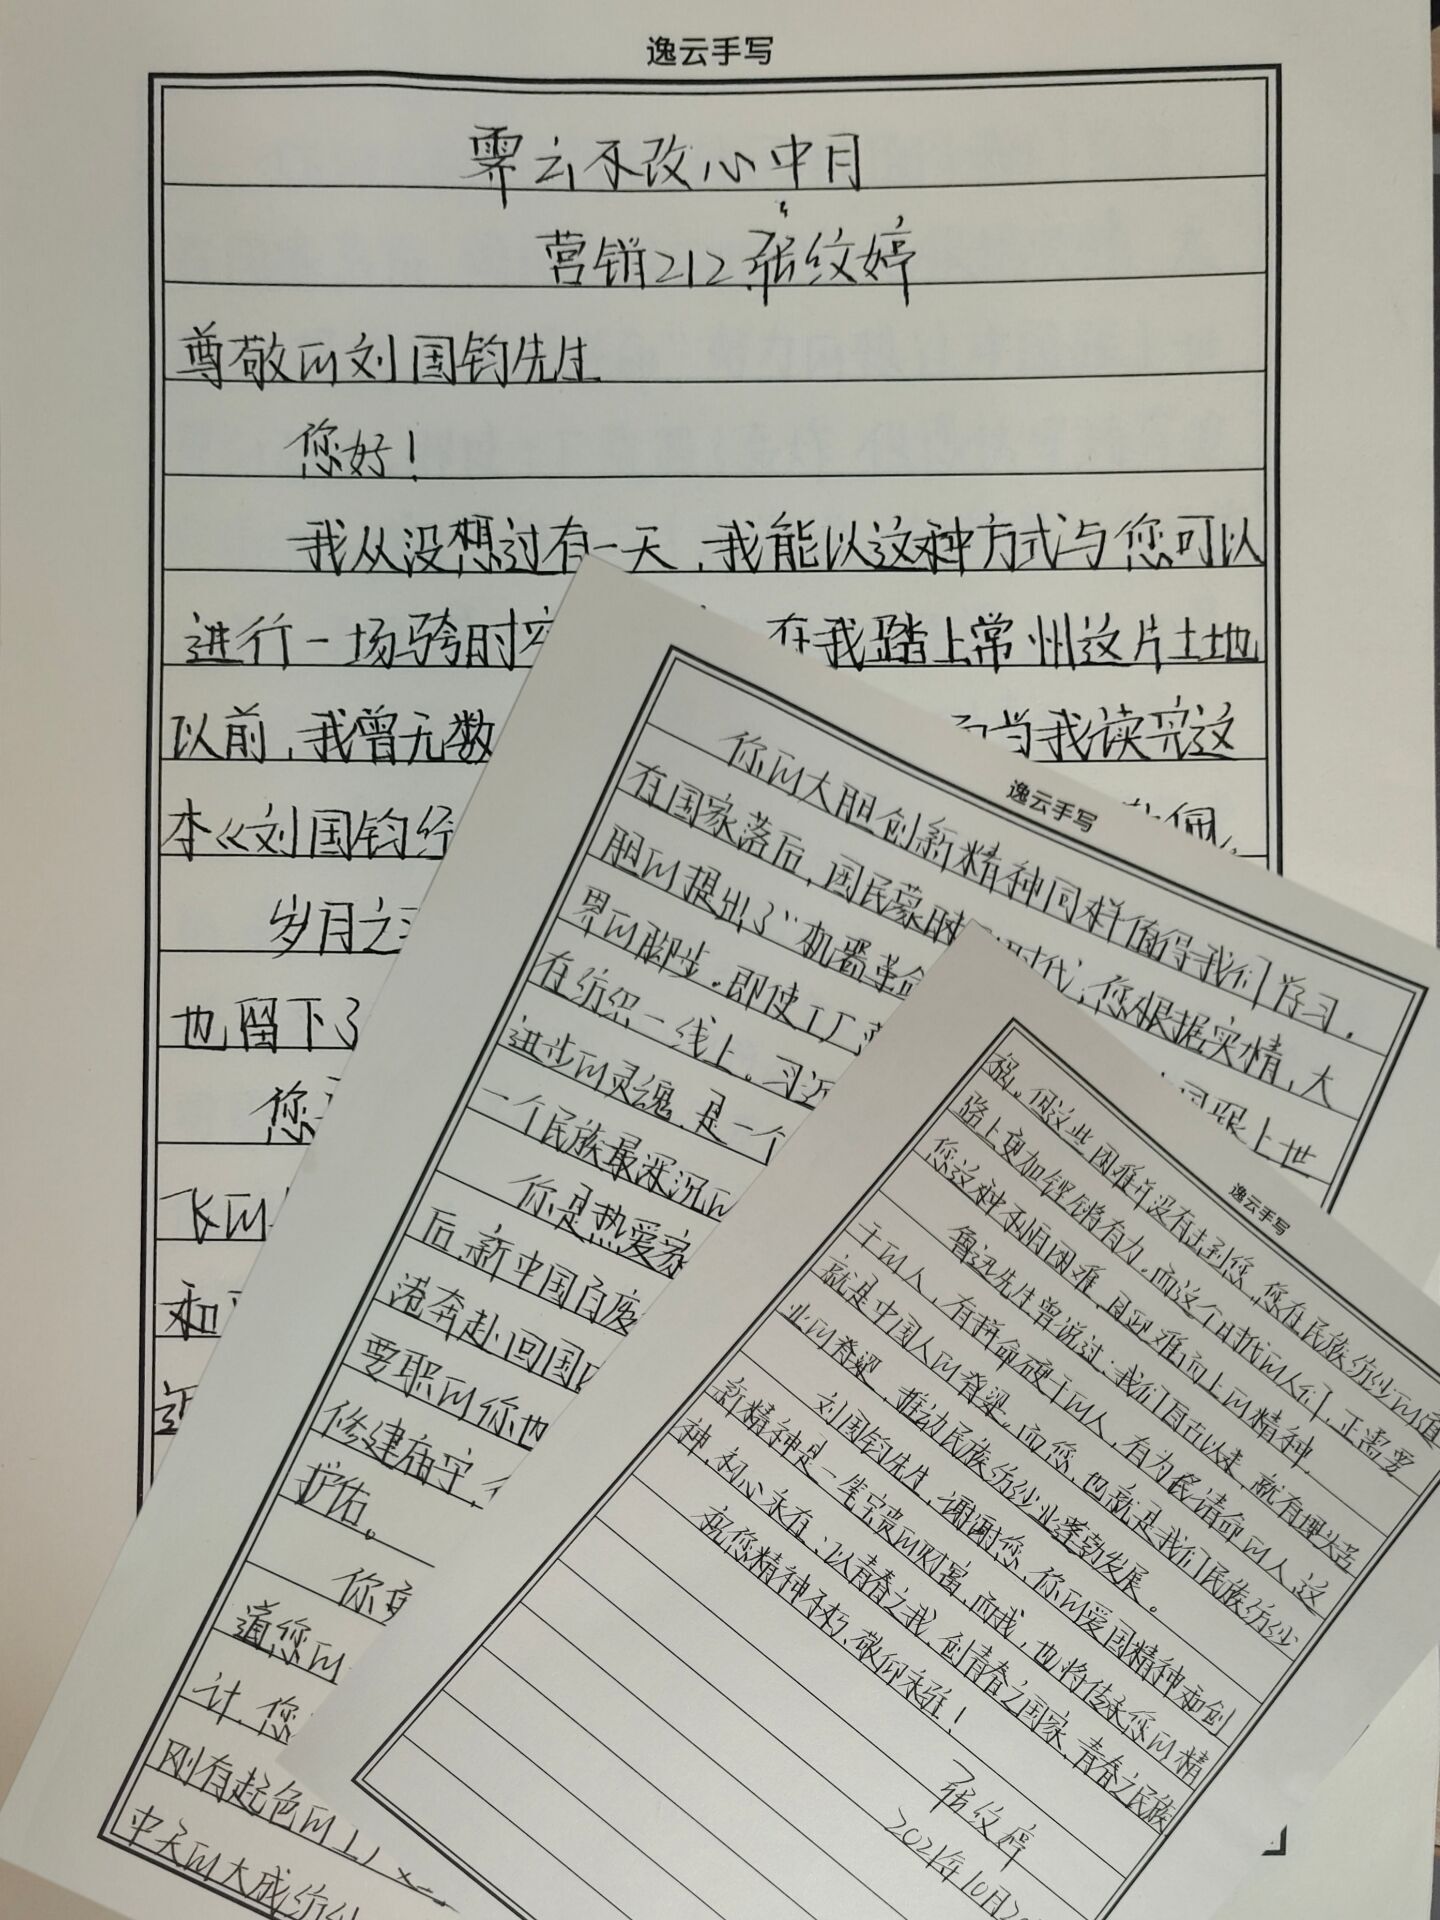 逸云手写
霁云不改心中月
营销212 张纹婷
尊敬的刘国钧先生
您好！
我从没想过有一天，我能以这种方式与您可以
进行一场跨时空 在我踏上常州这片土地
以前，我曾无数 而当我读完这
本《刘国钧传
岁月之
也留下了
您
飞的
和
逸云手写
你的大胆创新精神同样值得我们学习，
在国家落后，国民蒙昧的时代，您根据实情，大
胆的提出了“机器革命 国跟上世
界的脚步。即使工厂
在纺织一线上。习近
进步的灵魂，是一个
一个民族最深沉的
你是热爱家
后，新中国百废
港奔赴回国
要职的你也
修建庙宇，
护佑。
你
道您的
计，您
刚有起色的工厂
中天的大成纺
逸云手写
祸，但这些困难并没有击到您，您在民族纺纱的道
路上更加铿锵有力。而这个时代的人们，正需要
您这种不惧困难，迎难而上的精神。
鲁迅先生曾说过：我们自古以来，就有埋头苦
干的人，有拼命硬干的人，有为民请命的人，这
就是中国人的脊梁。而您，也就是我们民族纺纱
业的脊梁，推动民族纺纱业蓬勃发展。
刘国钧先生，谢谢您，你的爱国精神和创
新精神是一笔宝贵的财富，而我，也将传承您的精
神，初心永存：以青春之我，创青春之国家，青春之民族
祝您精神不朽，敬仰永驻！
张纹婷
2021年10月2